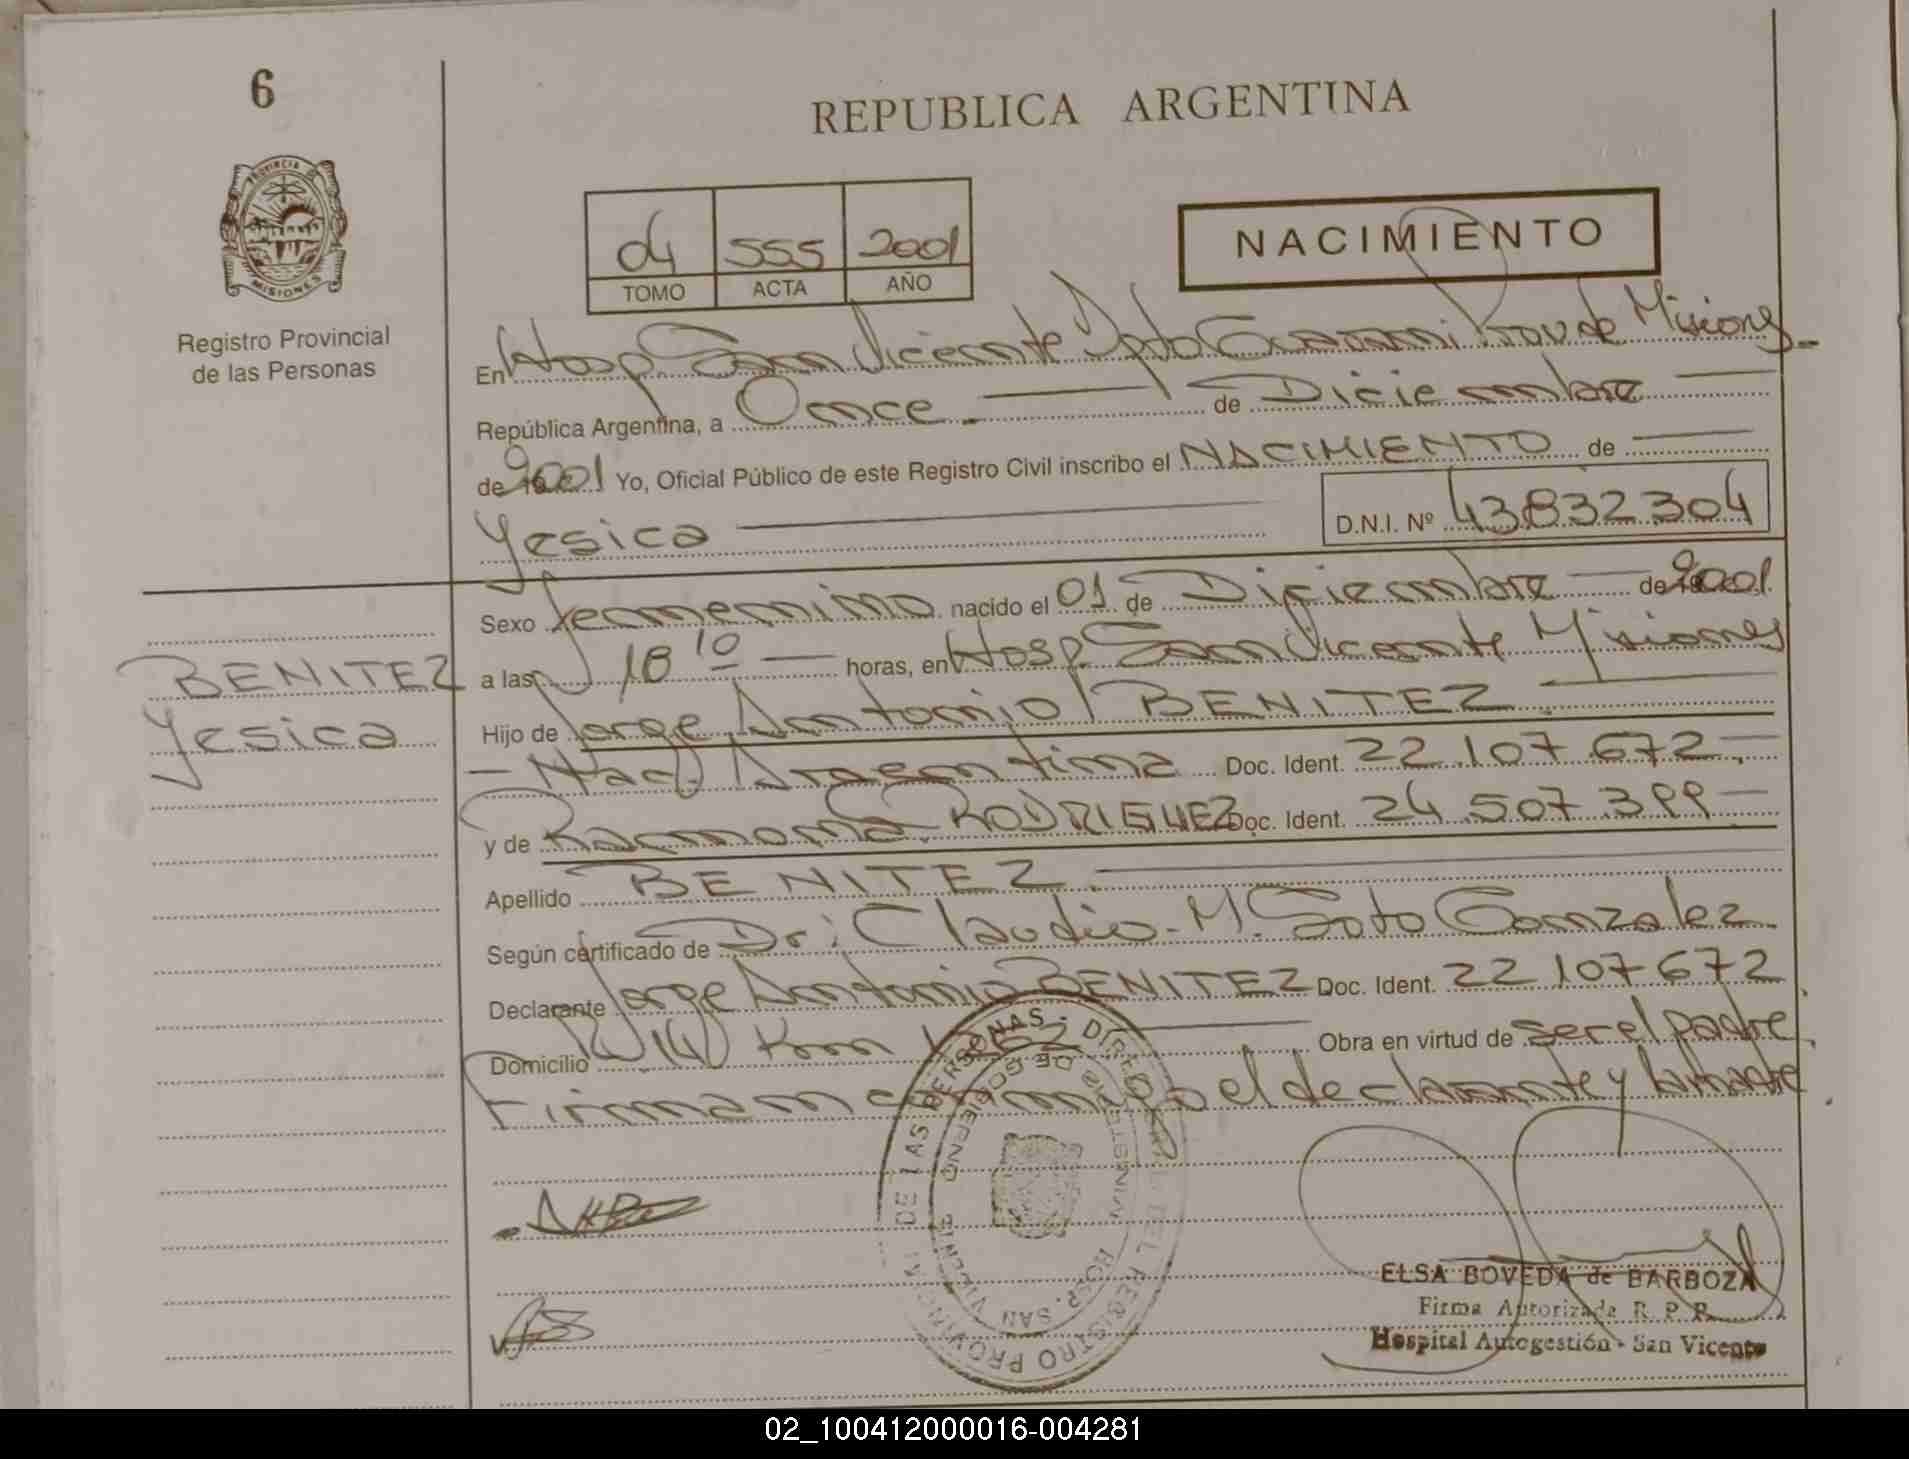 6
REPUBLICA ARGENTINA
PROVINCIA DE
MISIONES
Registro Provincial
de las Personas
04 555 2001
TOMO ACTA AÑO
NACIMIENTO
En Hosp San Vicente Dpto Guarani Prov de Misiones
República Argentina, a Once de Diciembre
de 2001 Yo, Oficial Público de este Registro Civil inscribo el NACIMIENTO de
Yesica D.N.I. Nº 43832304
Sexo femenino nacido el 01 de Diciembre de 2001
a las 18 10 horas, en Hosp. San Vicente Misiones
BENITEZ
Yesica
Hijo de Jorge Antonio BENITEZ
Nac. Argentina Doc. Ident. 22.107.672
y de Ramona RODRIGUEZ Doc. Ident. 24.507.399
Apellido BENITEZ
Según certificado de Dr: Claudio M. Soto Gonzalez
Declarante Jorge Antonio BENITEZ Doc. Ident. 22107672
Domicilio Km Obra en virtud de ser el padre
Firman conmigo el declarante y la madre
REGISTRO PROVINCIAL DE LAS PERSONAS
HOSP. SAN VICENTE
ELSA BOVEDA de BARBOZA
Firma Autorizada R. P. P.
Hospital Autogestión - San Vicente
02_100412000016-004281